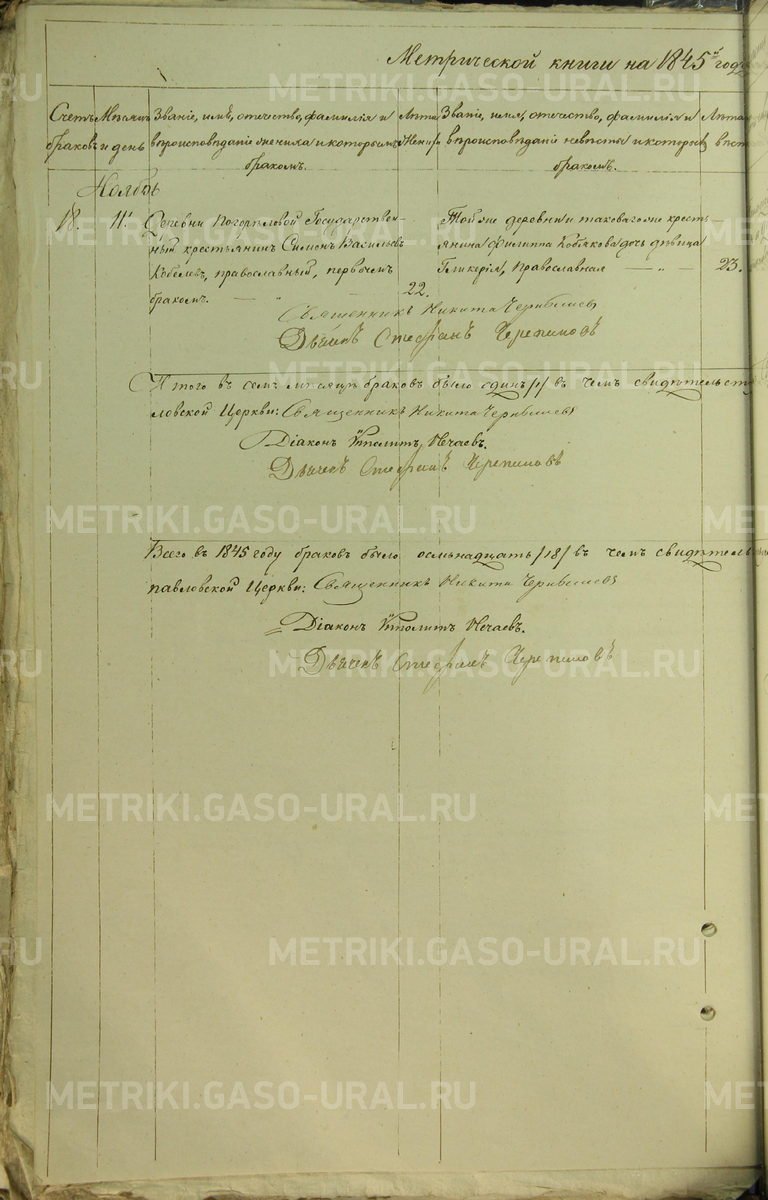 Метрической книги на 1845й годъ
Счетъ браковъ
Мѣсяцъ и день
Званіе, имя, отечество, фамилія и
вѣроисповѣданіе жениха и которымъ
бракомъ.
Лѣта
Жених
Званіе, имя, отечество, фамилія и
вѣроисповѣданіе невѣсты и которы
бракомъ.
Лѣта
Невѣст
Ноябрь
18. 11.
Деревни Погорѣловой Государствен-
ный крестьянинъ Симонъ Васильевъ
Кобелевъ, православный, первымъ
бракомъ. — „ — 22.
Той же деревни и таковагоже кресть-
янина Филиппа Кобякова дочь дѣвица
Гликерія, Православная — „ — 23.
Священникъ Никита
Дьячекъ Стефанъ Черепановъ
Итого въ семъ мѣсяцѣ браковъ было одинъ /1/ въ чемъ свидѣтельст
ловской Церкви: Священникъ Никита
Діаконъ Ипполитъ Нечаевъ.
Дьячекъ Стефанъ Черепановъ
Всего въ 1845 году браковъ было осьмьнадцать /18/ въ чемъ свидѣтель
павловской Церкви: Священникъ Никита
Діаконъ Ипполитъ Нечаевъ.
Дьячекъ Стефанъ Черепановъ
METRIKI.GASO-URAL.RU